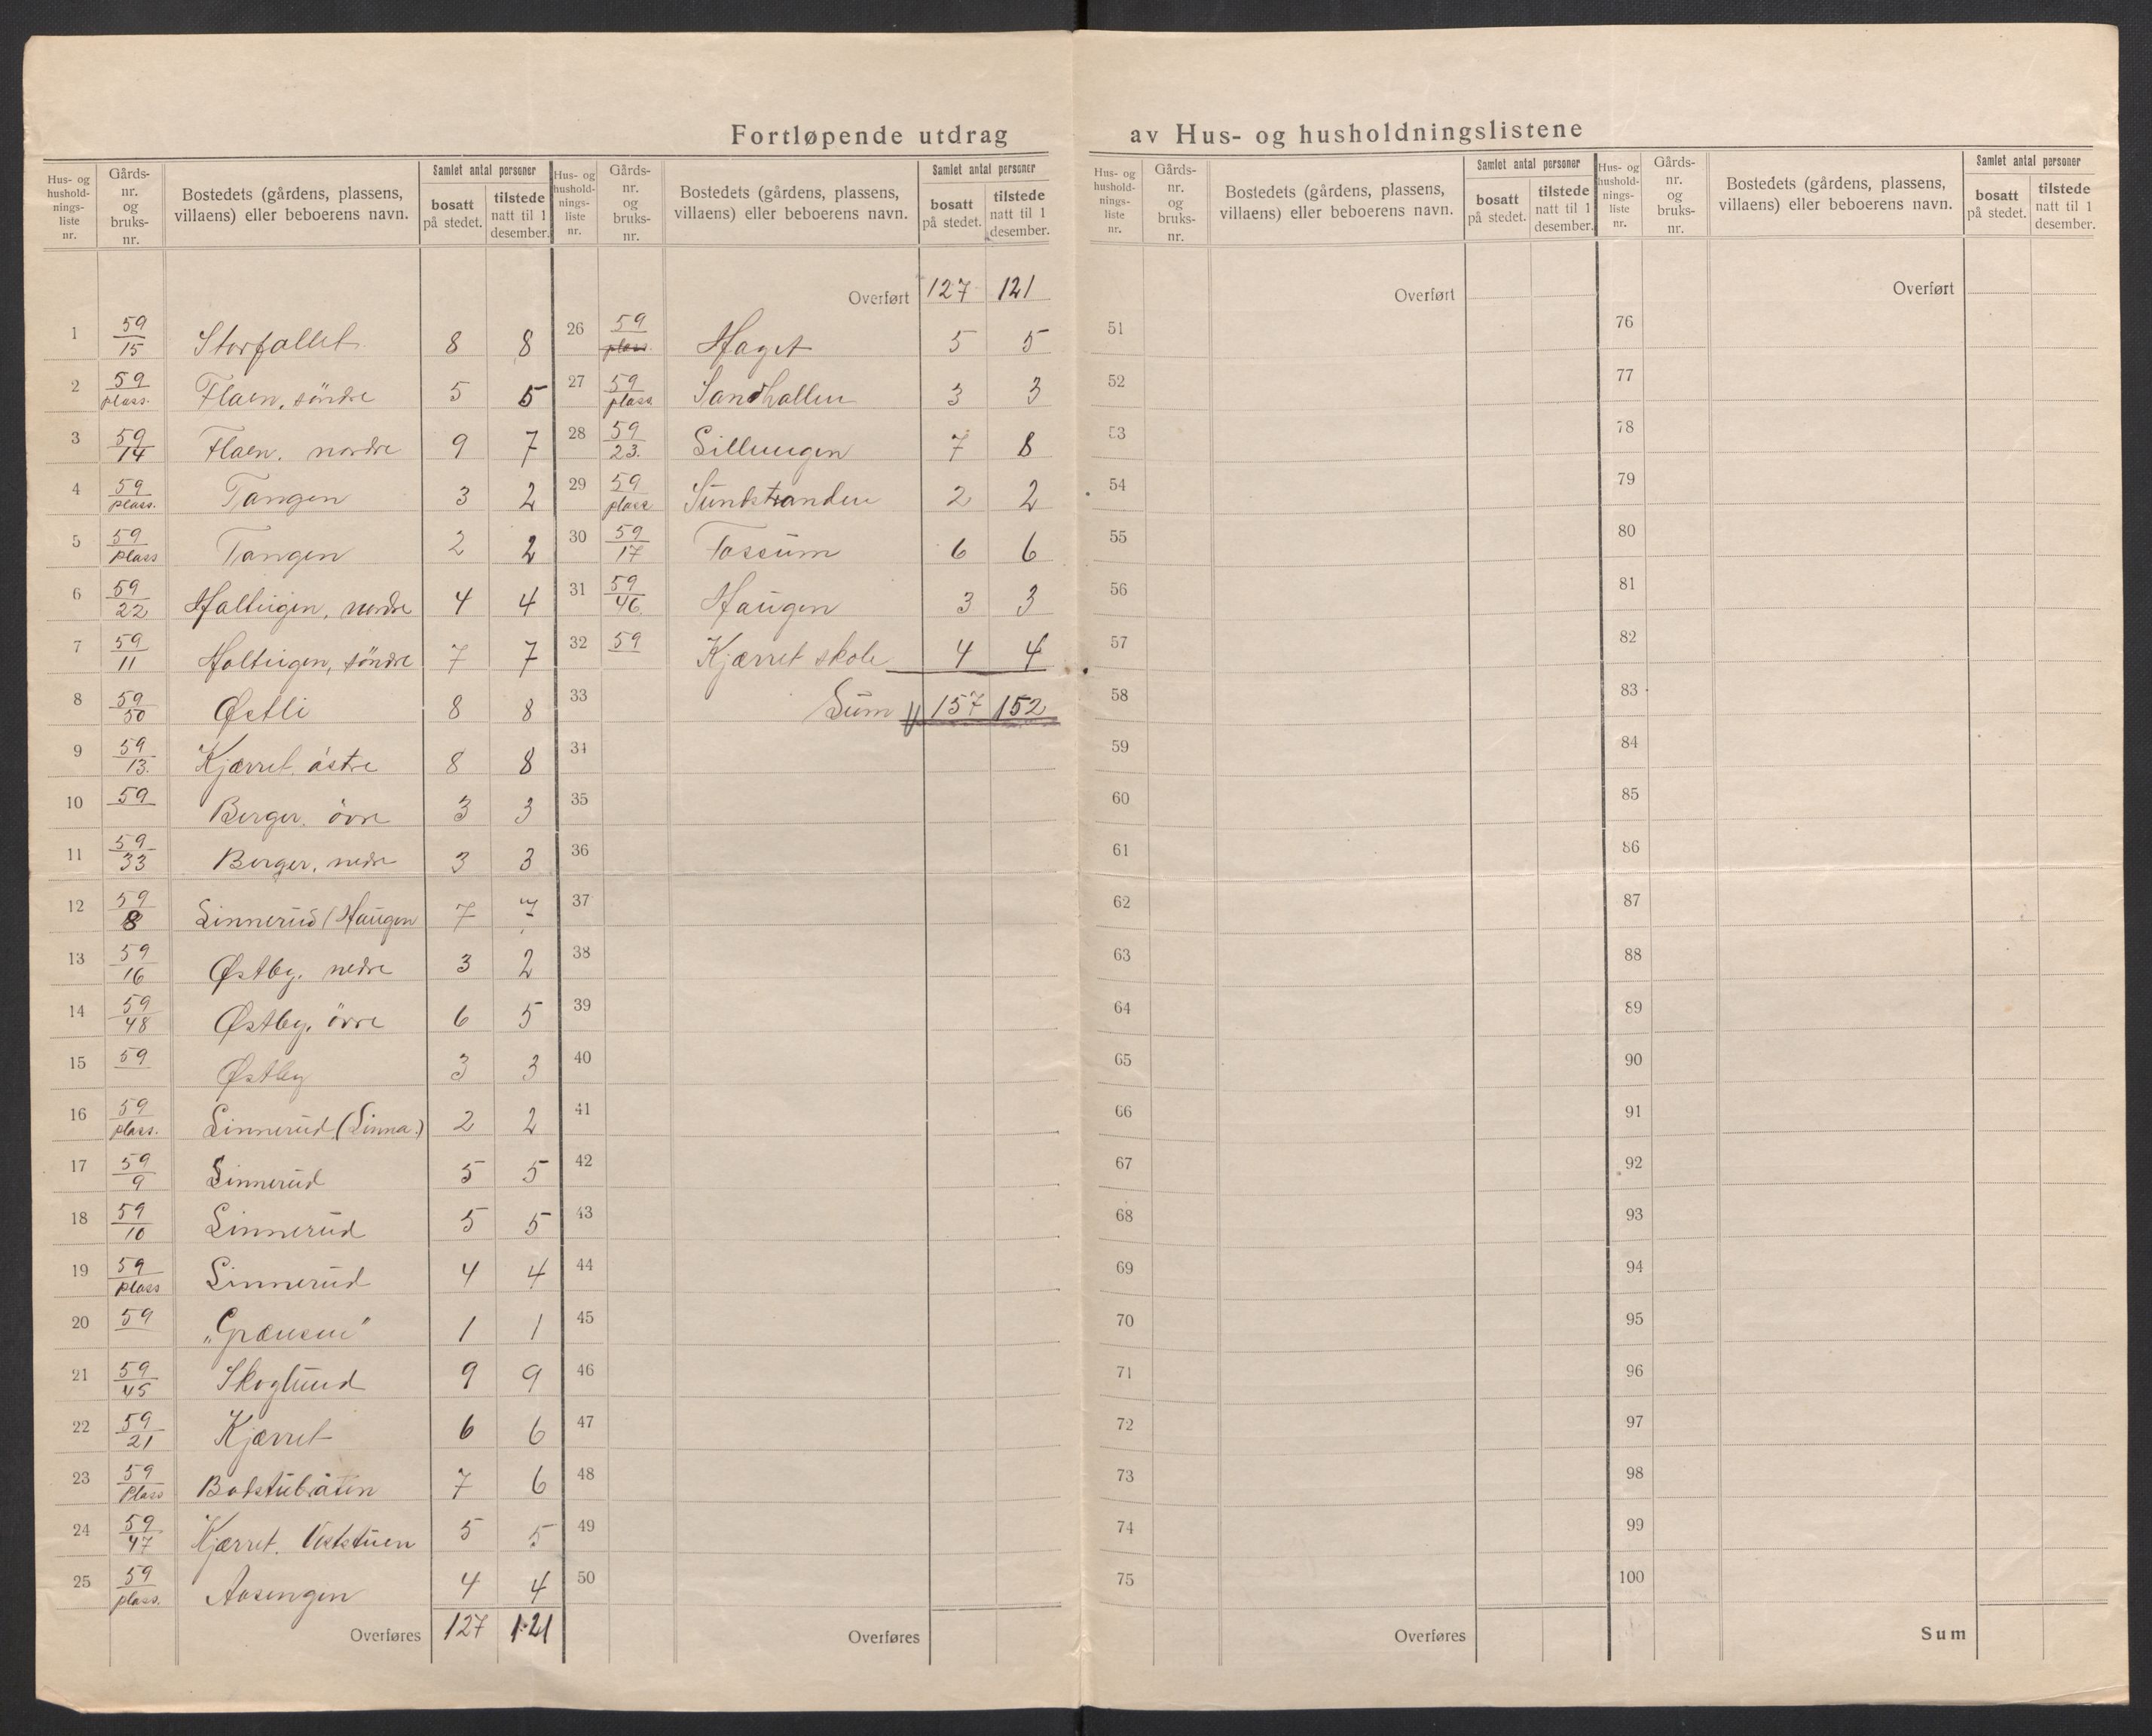 Fortløpende utdrag av Hus- og husholdningslistene
Hus- og hushold-nings-liste nr. | Gårds-nr. og bruks-nr. | Bostedets (gårdens, plassens, villaens) eller beboerens navn. | Samlet antal personer | bosatt på stedet. | tilstede natt til 1 desember.
1 59/15 Storfallet 8 8
2 59/plass. Flaen, söndre 5 5
3 59/14 Flaen. nordre 9 7
4 59/plass. Tangen 3 2
5 59/plass Tangen 2 2
6 59/22 nordre 4 4
7 59/11 söndre 7 7
8 59/50 Østli 8 8
9 59/13. Kjærret. östre 8 8
10 59 Berger. övre 3 3
11 59/33 Berger, nedre 3 3
12 59/8 Linnerud (Haugen 7 7
13 59/16 Østby. nedre 3 2
14 59/48 Østby. övre 6 5
15 59 Østby 3 3
16 59/plass. Linnerud (Linna.) 2 2
17 59/9 Linnerud 5 5
18 59/10 Linnerud 5 5
19 59/plass Linnerud 4 4
20 59 „Grænsen" 1 1
21 59/45 Skoglund 9 9
22 59/21 Kjærret 6 6
23 59/Plass Badstubråten 7 6
24 59/47 Kjærret. Vedstuen 5 5
25 59/plass. Aasengen 4 4
Overføres 127 121
Hus- og hushold-nings-liste nr. | Gårds-nr. og bruks-nr. | Bostedets (gårdens, plassens, villaens) eller beboerens navn. | Samlet antal personer | bosatt på stedet. | tilstede natt til 1 desember.
Overført 127 121
26 59/plass. Haget 5 5
27 59/plass Sandhallen 3 3
28 59/23. Sillungen 7 8
29 59/plass Sundstranden 2 2
30 59/17 Fossum 6 6
31 59/46. Haugen 3 3
32 59 Kjærret skole 4 4
33 Sum 157 152
34
35
36
37
38
39
40
41
42
43
44
45
46
47
48
49
50
Overføres
Hus- og hushold-nings-liste nr. | Gårds-nr. og bruks-nr. | Bostedets (gårdens, plassens, villaens) eller beboerens navn. | Samlet antal personer | bosatt på stedet. | tilstede natt til 1 desember.
Overført
51
52
53
54
55
56
57
58
59
60
61
62
63
64
65
66
67
68
69
70
71
72
73
74
75
Overføres
Hus- og hushold-nings-liste nr. | Gårds-nr. og bruks-nr. | Bostedets (gårdens, plassens, villaens) eller beboerens navn. | Samlet antal personer | bosatt på stedet. | tilstede natt til 1 desember.
Overført
76
77
78
79
80
81
82
83
84
85
86
87
88
89
90
91
92
93
94
95
96
97
98
99
100
Sum